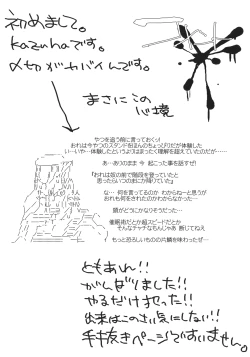 初めまして。
kazuhaです。
〆切がヤバイしです。
まさにこの
心境
やつを追う前に言っておくッ!
おれは今やつのスタンドをほんのちょっぴりだが体験した
い…いや…体験したというよりはまったく理解を超えていたのだが……
あ…ありのまま 今 起こった事を話すぜ!
『おれは奴の前で階段を登っていたと
思ったらいつのまにか降りていた』
な… 何を言ってるのか わからねーと思うが
おれも何をされたのかわからなかった…
頭がどうにかなりそうだった…
催眠術だとか超スピードだとか
そんなチャチなもんじゃあ 断じてねえ
もっと恐ろしいものの片鱗を味わったぜ…
ともあれ!!
がんばりました!!
やるだけやった!!
出来はこのさい気にしない!!
手抜きページですいません。